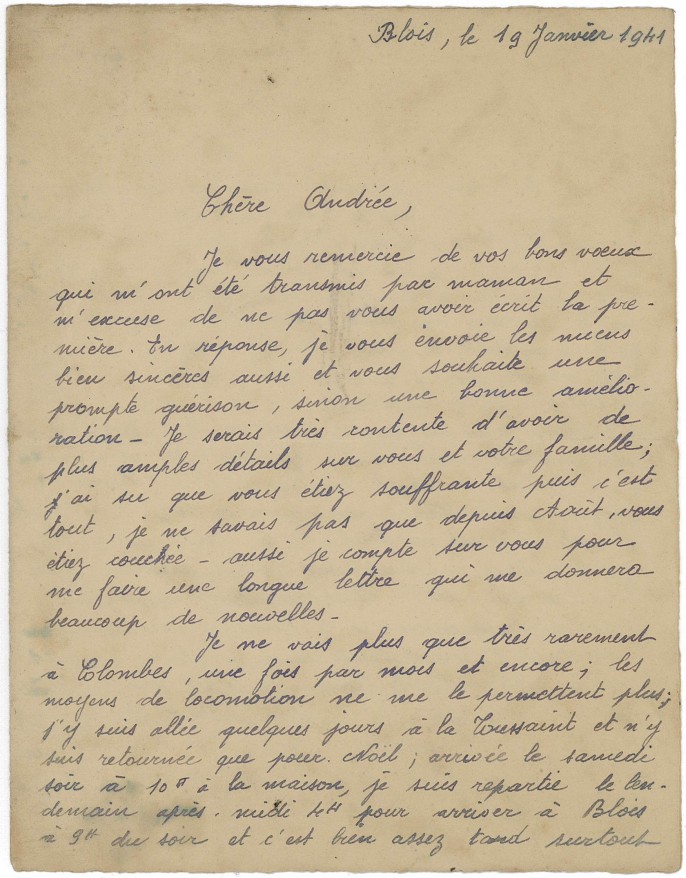 Blois, le 19 Janvier 1941
Chère Andrée,
Je vous remercie de vos bons vœux
qui m'ont été transmis par maman et
m'excuse de ne pas vous avoir écrit la pre-
mière. En réponse, je vous envoie les miens
bien sincères aussi et vous souhaite une
prompte guérison, sinon une bonne amélio-
ration - Je serais très contente d'avoir de
plus amples détails sur vous et votre famille;
j'ai su que vous étiez souffrante puis c'est
tout, je ne savais pas que depuis Août, vous
étiez couchée - aussi je compte sur vous pour
me faire une longue lettre qui me donnera
beaucoup de nouvelles -
Je ne vais plus que très rarement
à Colombes, une fois par mois et encore; les
moyens de locomotion ne me le permettent plus;
j'y suis allée quelques jours à la Toussaint et n'y
suis retournée que pour Noël; arrivée le samedi
soir à 10H à la maison, je suis repartie le len-
demain après-midi 4H pour arriver à Blois
à 9H du soir et c'est bien assez tard surtout